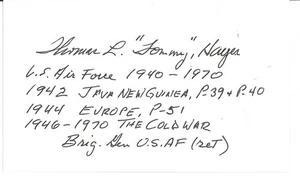 Thomas L. "Tommy", Hayes
U.S. Air Force 1940 - 1970
1942 JAVA NEW GUINEA, P-39 & P-40
1944 EUROPE, P-51
1946-1970 THE COLD WAR
Brig. Gen U.S.AF (ret)